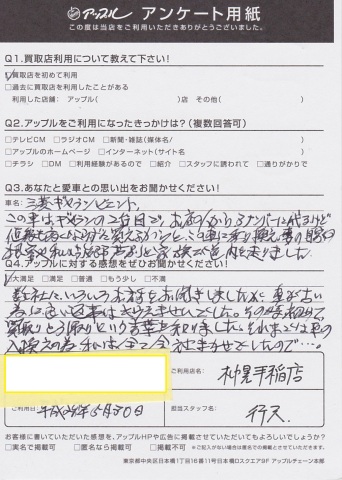 アップル アンケート用紙
この度は当店をご利用いただきありがとうございました。
Q1.買取店利用について教えて下さい!
☑買取店を初めて利用
□過去に買取店を利用したことがある
利用した店舗: アップル( )店 その他( )
Q2.アップルをご利用になったきっかけは?(複数回答可)
□テレビCM □ラジオCM □新聞・雑誌(媒体名/ )
□アップルのホームページ □インターネット(サイト名 )
□チラシ □DM □利用経験があるので □紹介 □スタッフに誘われて □通りがかりで
Q3.あなたと愛車との思い出をお聞かせください!
車名: 三菱ギャラン
この車はギャランの2台目で、
家族で道内を走りました
Q4.アップルに対する感想をぜひお聞かせください!
☑大満足 □満足 □普通 □もう少し □不満
数社にいろいろお話をお聞きしましたが、車が古い
為に良い返事はもらえませんでした。その時初めて
買取りと下取りという言葉を知りました。それまでは車の
入換えの為
ご利用店名: 札幌手稲店
ご利用日: 平成25年5月30日
担当スタッフ名:
お客様に書いていただいた感想を、アップルHPや広告に掲載させていただいてもよろしいでしょうか?
□実名で掲載可 □匿名なら掲載可 □掲載不可 ※ご記入がない場合は匿名での掲載とさせていただきます。
東京都中央区日本橋1丁目16番11号日本橋Dスクエア9F アップルチェーン本部